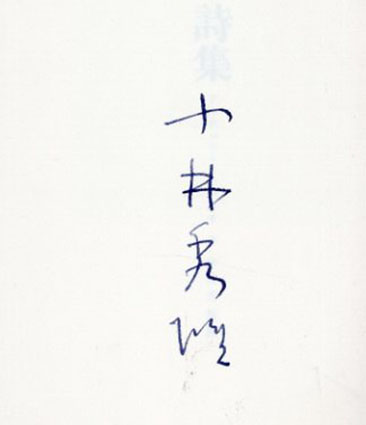 詩集
小林秀雄